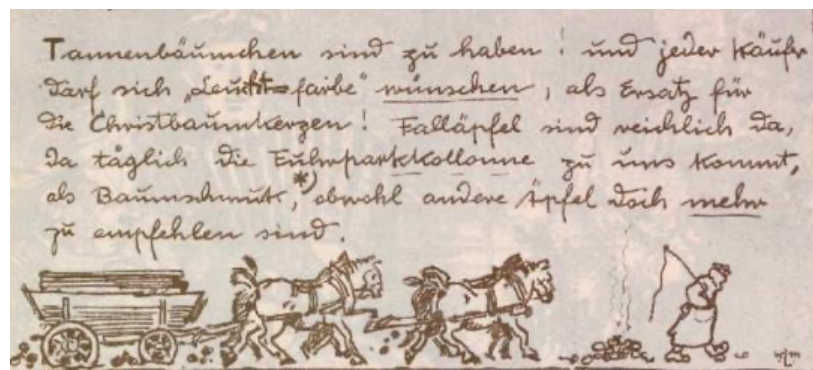 Tannenbäumchen sind zu haben! und jeder Käufer
darf sich „Leucht=farbe" wünschen, als Ersatz für
die Christbaumkerzen! Falläpfel sind reichlich da,
da täglich die Fuhrparkkollonne zu uns kommt,
als Baumschmuk,*) obwohl andere Äpfel doch mehr
zu empfehlen sind.